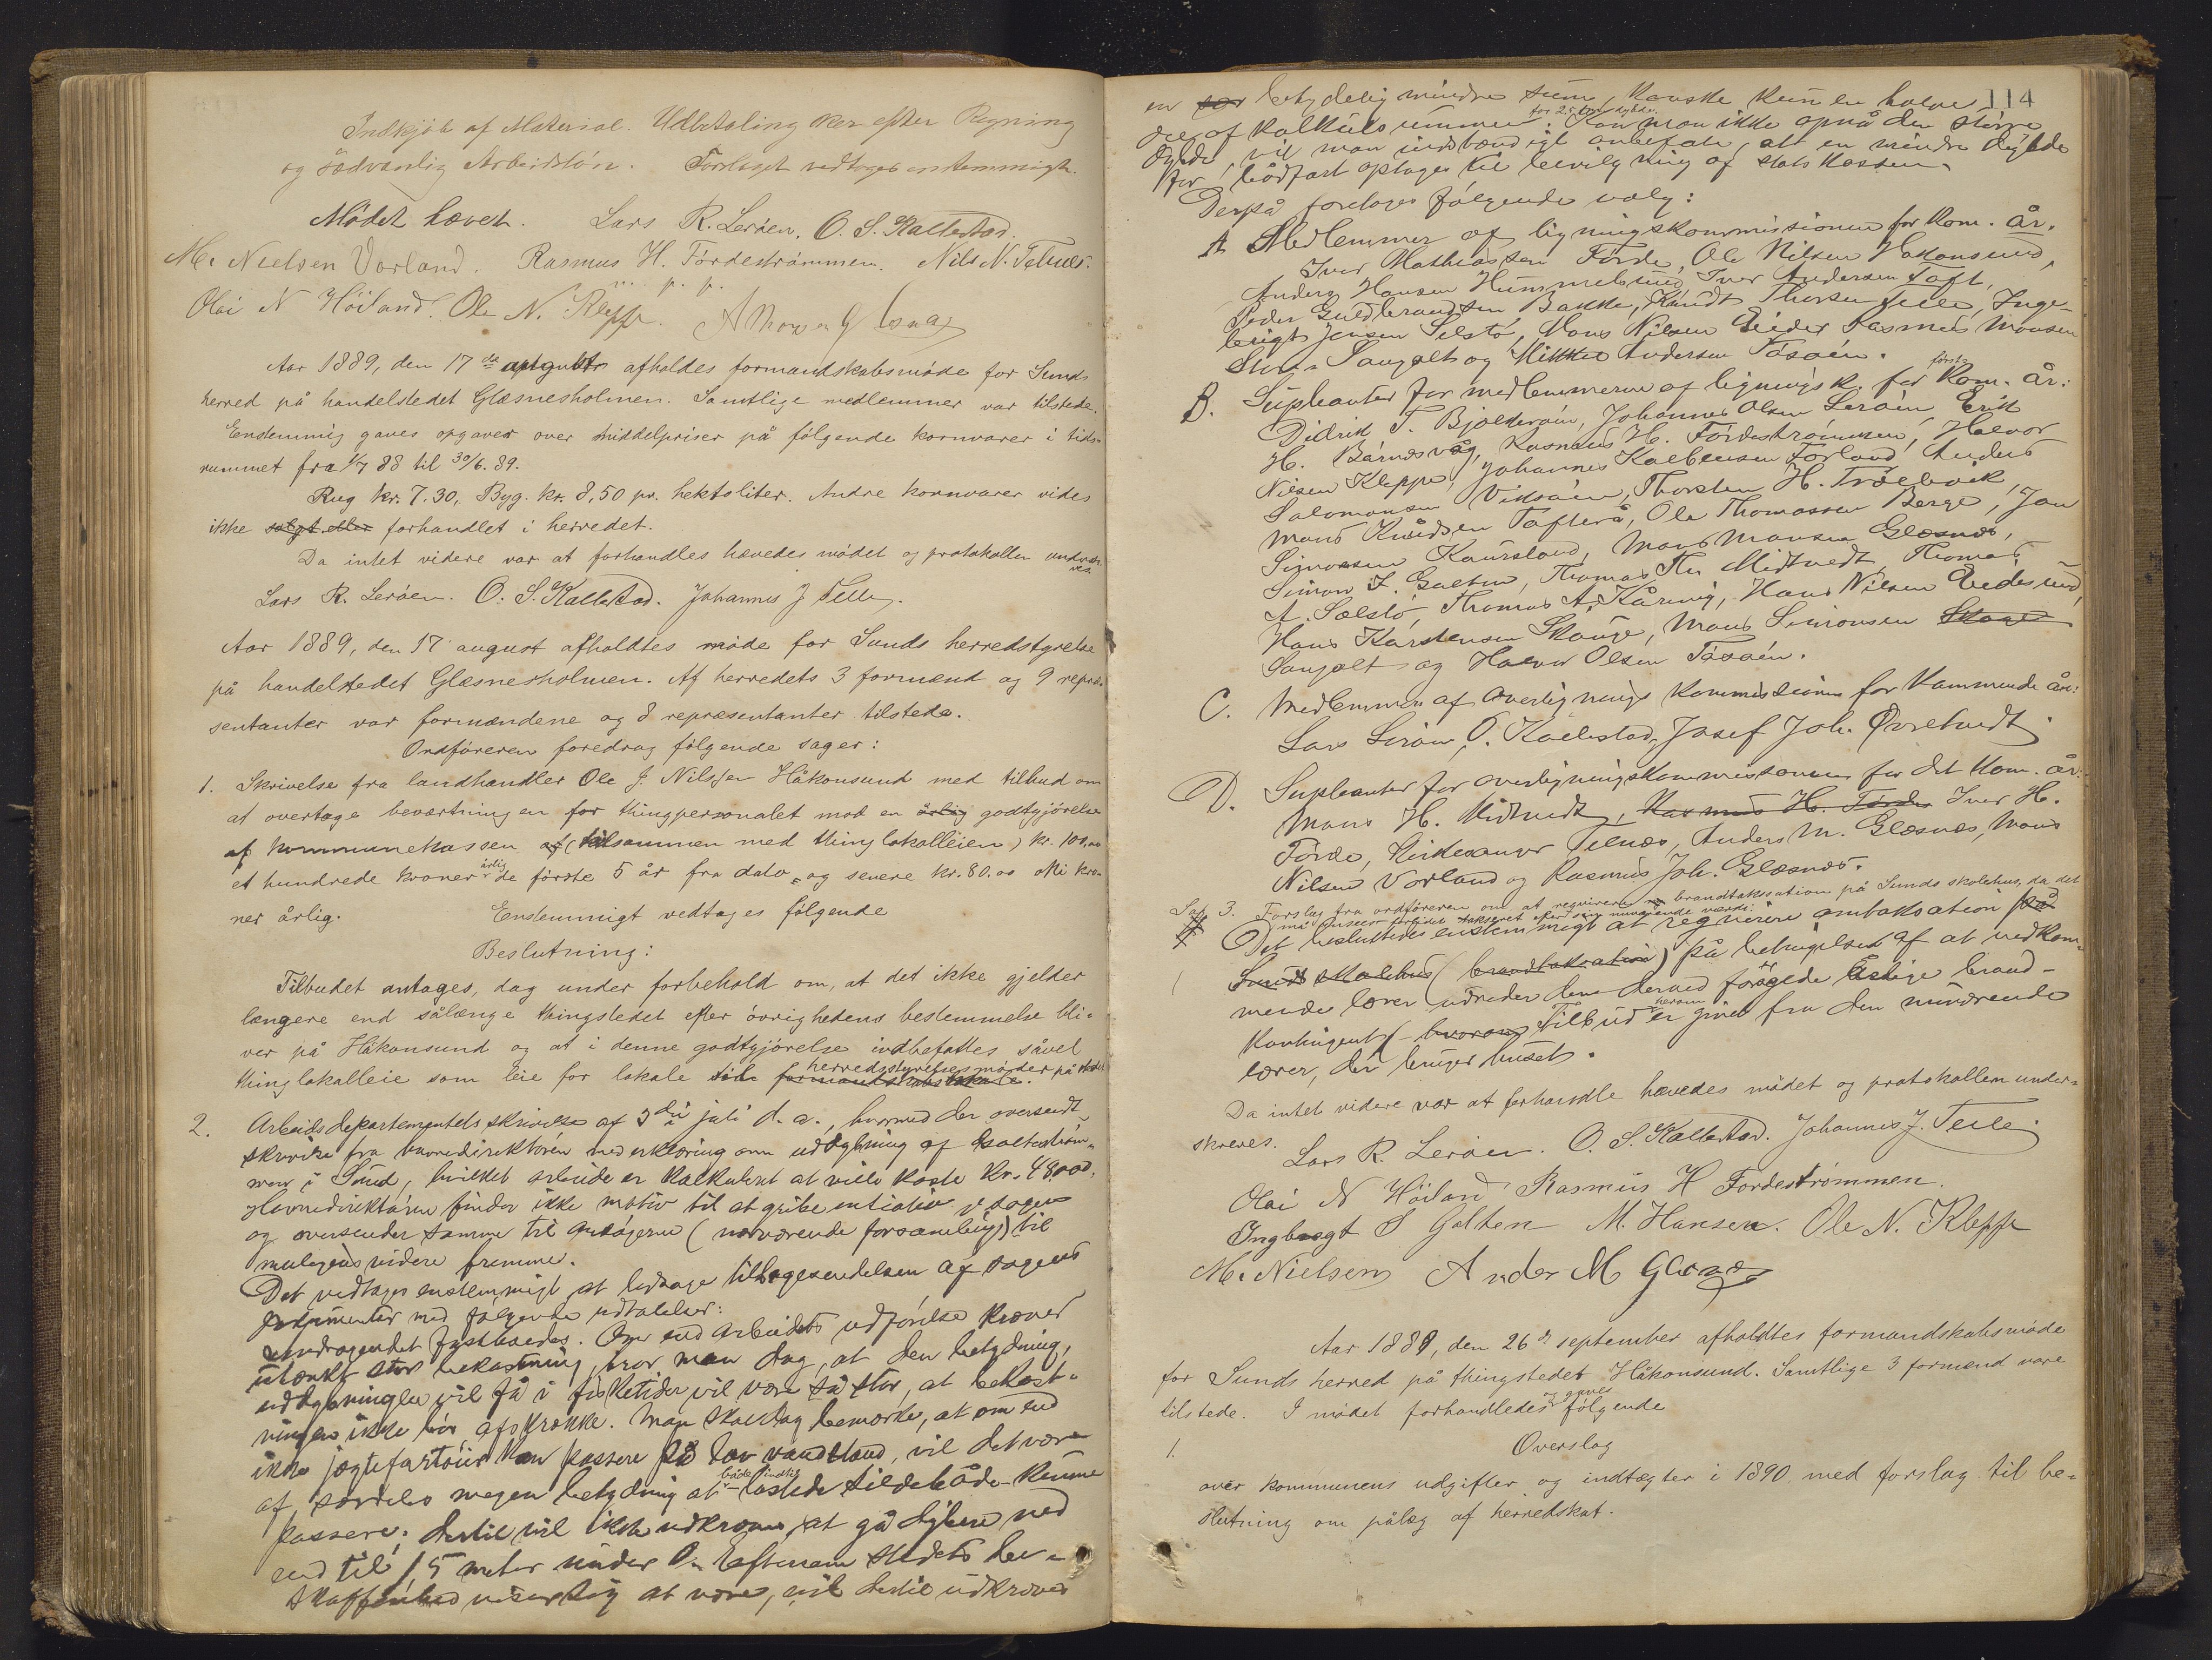 Indkjöb af Material. Udbetaling sker efter Regning
og sædvanlig Arbeidslön. Forslaget vedtoges enstemmigt.
Mödet hævet. Lars R. Leröen. O. S. Kallestad.
M. Nielsen Vorland. Rasmus H. Fördeströmmen. Nils N. Telnes.
Olai N Höiland. Ole N. Klepp.
Aar 1889, den 17de august afholdes formandskabsmöde for Sunds
herred på handelstedet Glæsnesholmen. Samtlige medlemmer var tilstede.
Enstemmig gaves opgaver over middelpriser på fölgende kornvarer i tids-
rummet fra 1/7 88 til 30/6. 89.
Rug kr. 7.30, Byg. kr. 8,50 pr. hektoliter. Andre kornvarer vides
ikke solgt eller forhandlet i herredet.
Da intet videre var at forhandles hævedes mödet og protokollen underskre-
ves.
Lars R. Leröen. O. S. Kallestad. Johannes J Telle.
Aar 1889, den 17 august afholdtes möde for Sunds herredstyrelse
på handelstedet Glæsnesholmen. Af herredets 3 formænd og 9 repræ-
sentanter var formændene og 8 repræsentanter tilstede.
Ordföreren foredrog fölgende sager:
1. Skrivelse fra landhandler Ole J. Nilssen Håkonsund med tilbud om
at overtage beværtningen for thingpersonalet mod en årlig godtgjörelse
af kommunekassen af (tilsammen med thinglokalleien) kr. 100,00
et hundrede kroner årlig de förste 5 år fra dato, og senere kr. 80.00 otti kro-
ner årlig. Enstemmigt vedtages fölgende
Beslutning:
Tilbudet antages, dog under forbehold om, at det ikke gjelder
længere end sålænge thingstedet efter övrighedens bestemmelse bli-
ver på Håkonsund og at i denne godtgjörelse indbefattes såvel
thinglokalleie som leie for lokale til formandskabslokale. herredsstyrelsesmöder på stedet
2. Arbeidsdepartementets skrivelse af 3die juli d. a., hvormed der oversendt
skrivelse fra havnedirektören med erklæring om uddybning af Galteström-
men i Sund, hvilket arbeide er kalkuleret at ville koste Kr. 48000.
Havnedirektören finder ikke motiv til at gribe initiativ i sagen
og oversender samme til ansögerne (nærværende forsamling) til
muligens videre fremme.
Det vedtages enstemmigt at ledsage tilbagesendelsen af sagens
dokumenter med fölgende udtalelser:
Andragendet fastholdes. Om end arbeidets udförelse kræver
utænkt stor bekostning, tror man dog, at den betydning,
uddybningen vil få i fisketider vil være så stor, at bekost-
ningen ikke bör afskrække. Man skal dog bemærke, at om end
ikke jægtefartöier kan passere på lav vandstand, vil det være
af særdeles megen betydning at både indtil lastede sildebåde kunne
passere; dertil vil ikke udkræves at gå dybere ned
end til 1,5 meter under 0. Eftersom stedets be-
skaffenhed viser sig at være, vil dertil udkræves
114
en stor betydelig mindre sum, kanske kun en halve
del af kalkulesummen for 2,5 meter dybde. Kan man ikke opnå den större
dybde, vil man indstændigt anbefale, at en mindre dybde
for bådfart optages til bevilgning af statskassen.
Derpå foretoges fölgende valg:
A Medlemmer af ligningskommissionen for kom. år.
Iver Mathiassen Förde, Ole Nilsen Hakonsund,
Anders Hansen Hummelsund, Iver Andersen Toft,
Peder Guldbrandsen Bakke, Knudt Thorsen Teile, Inge-
brigt Jensen Selstö, Mons Nilsen Eide, Rasmus Monsen
Steen, Sangolt og Mikkel Andersen Tösöen.
B. Supleanter for medlemmerne af ligningsk. for först Kom. år:
Didrik T. Bjelderöen, Johannes Olsen Leröen, Erik
H. Bårnesvåg, Rasmus H. Fördeströmmen, Halvor
Nilsen Kleppe, Johannes Kolbensen Forland, Anders
Salomonsen Viksöen, Thorsten H. Trælevik,
Mons Knudsen Tofterå, Ole Thomassen Berge, Jon
Simonsen Kausland, Mons Monsen Glæsnæs,
Simon I. Galten, Thomas Th. Midtvedt, Thomas
A. Sælstö, Thomas A. Kåring, Hans Nilsen Eidesund,
Hans Karstensen Skauge, Mons Simonsen Skoge
Sangolt og Halvor Olsen Tösöen.
C. Medlemmer af overligningskommissionen for kommende år:
Lars Leröen, O. Kallestad, Josef Joh. Övretvedt.
D. Supleanter for overligningskommissionen for det kom. år:
Mons H. Midtvedt, Rasmus H. Förde Iver H.
Förde, Kirkesanger Telnæs, Anders M. Glæsnæs, Mons
Nilsen Vorland og Rasmus Joh. Glæsnæs.
Sag 3. Forslag fra ordföreren om at requirere en brandtaksation på Sunds skolehus, da det
må ansees takseret efter sin nuværende værdi.
Det besluttedes enstemmigt at reqvirere omtaksation på
Sunds skolehus (brandtaksation) på betingelse af at vedkom-
mende lærer udreder den derved forögede årlige brand-
kontingent (hvorom Tilbud herom er givet fra den nuværende
lærer, der bruger huset.
Da intet videre var at forhandle hævedes mödet og protokollen under-
skreves. Lars R. Leröen. O. S. Kallestad. Johannes J. Teile.
Olai N Höiland Rasmus H Fordeströmmen.
Ingbregt S Galten M. Hansen. Ole N. Kleppe
M. Nielsen Ander M Glæsnæs
Aar 1889, den 26de september afholdtes formandskabsmöde
for Sunds herred på thingstedet Håkonsund. Samtlige 3 formænd vare
tilstede. I mödet forhandledes og gaves fölgende
1. Overslag
over kommunens udgifter og indtægter i 1890 med forslag til be-
slutning om pålæg af herredskat.